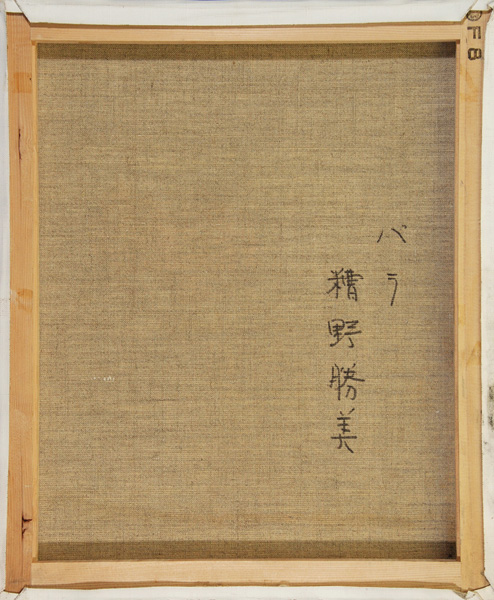 バラ
糟野勝美
F8